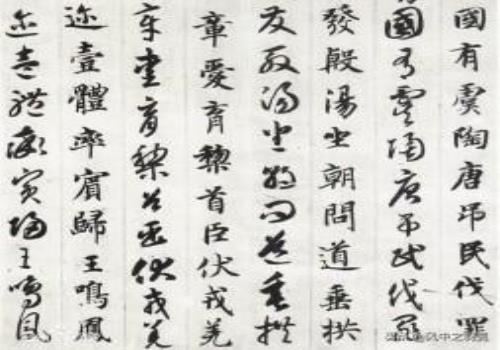 國有虞陶唐弔民伐罪
國有虞陶唐弔民伐罪
發殷湯坐朝問道垂拱
發殷湯坐朝問道垂拱
章愛育黎首臣伏戎羌
章愛育黎首臣伏戎羌
迩壹體率賓歸王鳴鳳
迩壹體率賓歸王鳴鳳